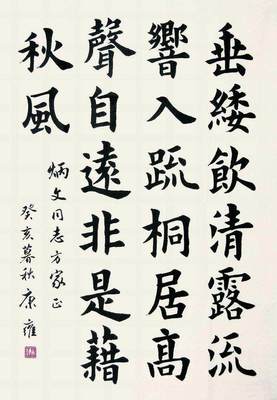 垂緌飲清露流
響入疏桐居高
聲自遠非是藉
秋風
炳文同志方家正
癸亥暮秋康雍